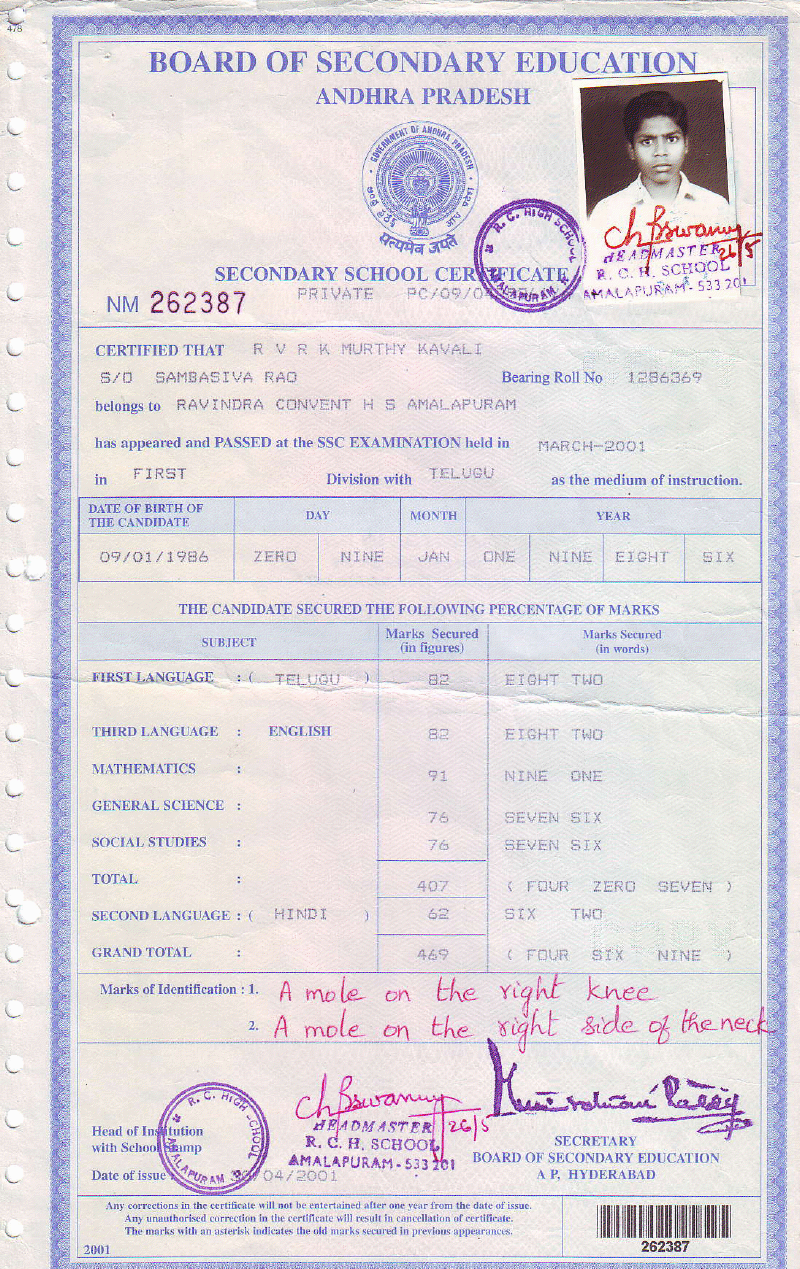 478
BOARD OF SECONDARY EDUCATION
ANDHRA PRADESH
GOVERNMENT OF ANDHRA PRADESH
सत्यमेव जयते
R. C. HIGH SCHOOL
AMALAPURAM
Ch Bswamy
26/5
HEADMASTER
R. C. H. SCHOOL
AMALAPURAM-533 201
SECONDARY SCHOOL CERTIFICATE
NM 262387
PRIVATE PC/09/0
CERTIFIED THAT R V R K MURTHY KAVALI
S/O SAMBASIVA RAO Bearing Roll No 1286369
belongs to RAVINDRA CONVENT H S AMALAPURAM
has appeared and PASSED at the SSC EXAMINATION held in MARCH-2001
in FIRST Division with TELUGU as the medium of instruction.
DATE OF BIRTH OF THE CANDIDATE DAY MONTH YEAR
09/01/1986 ZERO NINE JAN ONE NINE EIGHT SIX
THE CANDIDATE SECURED THE FOLLOWING PERCENTAGE OF MARKS
SUBJECT Marks Secured (in figures) Marks Secured (in words)
FIRST LANGUAGE : ( TELUGU ) 82 EIGHT TWO
THIRD LANGUAGE : ENGLISH 82 EIGHT TWO
MATHEMATICS : 91 NINE ONE
GENERAL SCIENCE : 76 SEVEN SIX
SOCIAL STUDIES : 76 SEVEN SIX
TOTAL : 407 ( FOUR ZERO SEVEN )
SECOND LANGUAGE : ( HINDI ) 62 SIX TWO
GRAND TOTAL : 469 ( FOUR SIX NINE )
Marks of Identification : 1. A mole on the right knee
2. A mole on the right side of the neck
R. C. HIGH SCHOOL
AMALAPURAM
Ch Bswamy
26/5
HEADMASTER
R. C. H. SCHOOL
AMALAPURAM-533 201
Head of Institution
with School Stamp
Date of issue /04/2001
SECRETARY
BOARD OF SECONDARY EDUCATION
A P, HYDERABAD
Any corrections in the certificate will not be entertained after one year from the date of issue.
Any unauthorised correction in the certificate will result in cancellation of certificate.
The marks with an asterisk indicates the old marks secured in previous appearances.
2001
262387